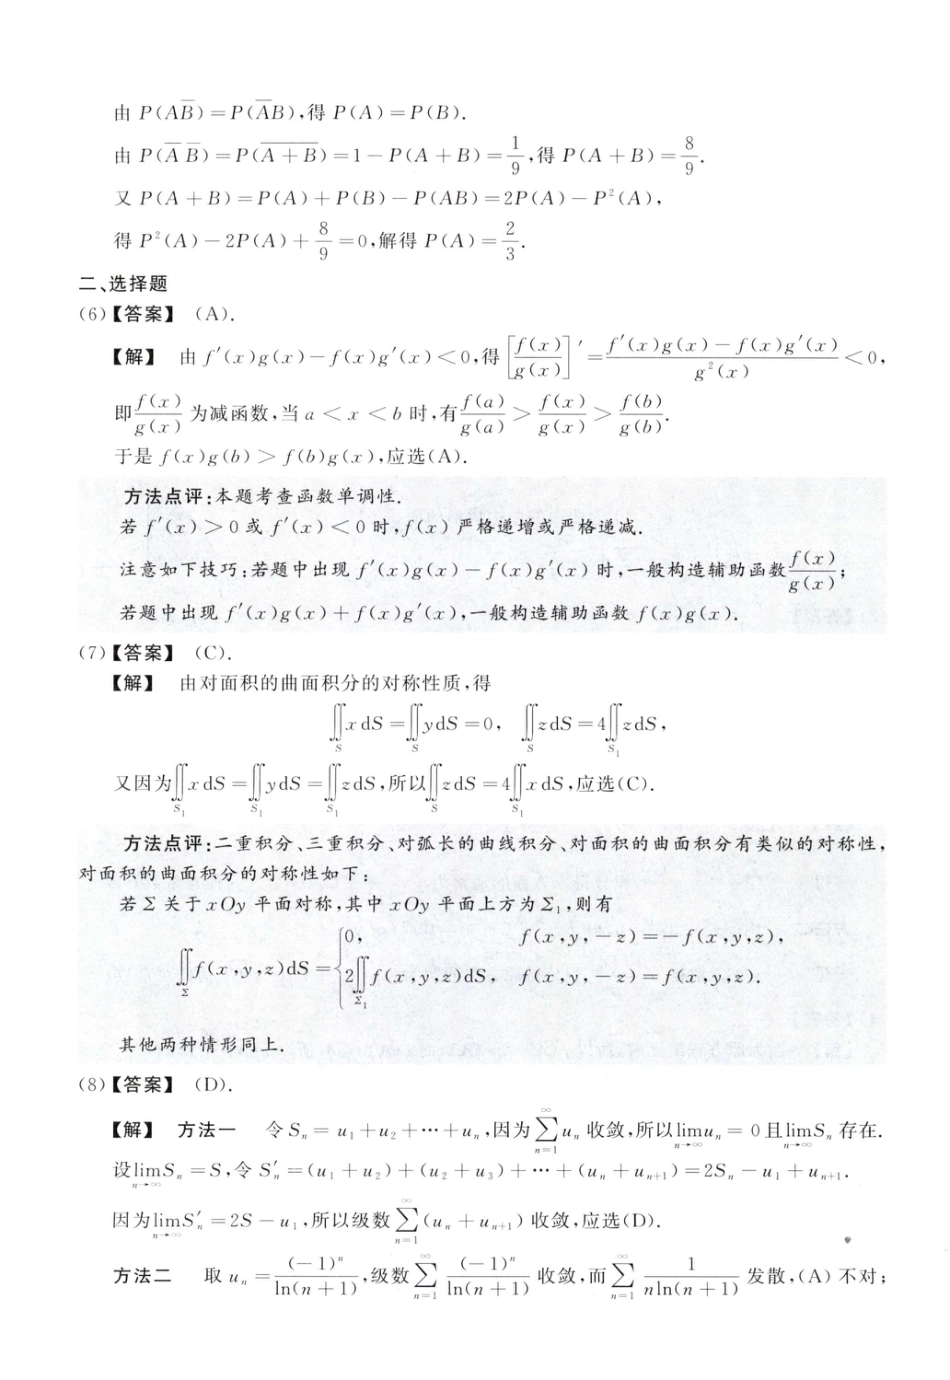 由 P(AB̅)=P(A̅B),得 P(A)=P(B).
由 P(A̅ B̅)=P(\overline{A+B})=1-P(A+B)=\frac{1}{9},得 P(A+B)=\frac{8}{9}.
又 P(A+B)=P(A)+P(B)-P(AB)=2P(A)-P²(A),
得 P²(A)-2P(A)+\frac{8}{9}=0,解得 P(A)=\frac{2}{3}.
二、选择题
(6)【答案】 (A).
【解】 由 f′(x)g(x)-f(x)g′(x)<0,得[\frac{f(x)}{g(x)}]′=\frac{f′(x)g(x)-f(x)g′(x)}{g²(x)}<0,
即\frac{f(x)}{g(x)}为减函数,当 a<x<b 时,有\frac{f(a)}{g(a)}>\frac{f(x)}{g(x)}>\frac{f(b)}{g(b)}.
于是 f(x)g(b)>f(b)g(x),应选(A).
方法点评:本题考查函数单调性.
若 f′(x)>0 或 f′(x)<0 时,f(x)严格递增或严格递减.
注意如下技巧:若题中出现 f′(x)g(x)-f(x)g′(x)时,一般构造辅助函数\frac{f(x)}{g(x)};
若题中出现 f′(x)g(x)+f(x)g′(x),一般构造辅助函数 f(x)g(x).
(7)【答案】 (C).
【解】 由对面积的曲面积分的对称性质,得
∬_{S} x dS=∬_{S} y dS=0, ∬_{S} z dS=4∬_{S_1} z dS,
又因为∬_{S_1} x dS=∬_{S_1} y dS=∬_{S_1} z dS,所以∬_{S} z dS=4∬_{S_1} x dS,应选(C).
方法点评:二重积分、三重积分、对弧长的曲线积分、对面积的曲面积分有类似的对称性,
对面积的曲面积分的对称性如下:
若 Σ 关于 xOy 平面对称,其中 xOy 平面上方为 Σ₁,则有
∬_{Σ} f(x,y,z)dS={0, f(x,y,-z)=-f(x,y,z),
2∬_{Σ_1} f(x,y,z)dS, f(x,y,-z)=f(x,y,z).
其他两种情形同上.
(8)【答案】 (D).
【解】 方法一 令 S_n=u_1+u_2+⋯+u_n,因为∑_{n=1}^{∞}u_n 收敛,所以\lim_{n→∞}u_n=0 且\lim_{n→∞}S_n 存在.
设\lim_{n→∞}S_n=S,令 S′_n=(u_1+u_2)+(u_2+u_3)+⋯+(u_n+u_{n+1})=2S_n-u_1+u_{n+1}.
因为\lim_{n→∞}S′_n=2S-u_1,所以级数∑_{n=1}^{∞}(u_n+u_{n+1})收敛,应选(D).
方法二 取 u_n=\frac{(-1)^n}{ln(n+1)},级数∑_{n=1}^{∞}\frac{(-1)^n}{ln(n+1)}收敛,而∑_{n=1}^{∞}\frac{1}{nln(n+1)}发散,(A)不对;